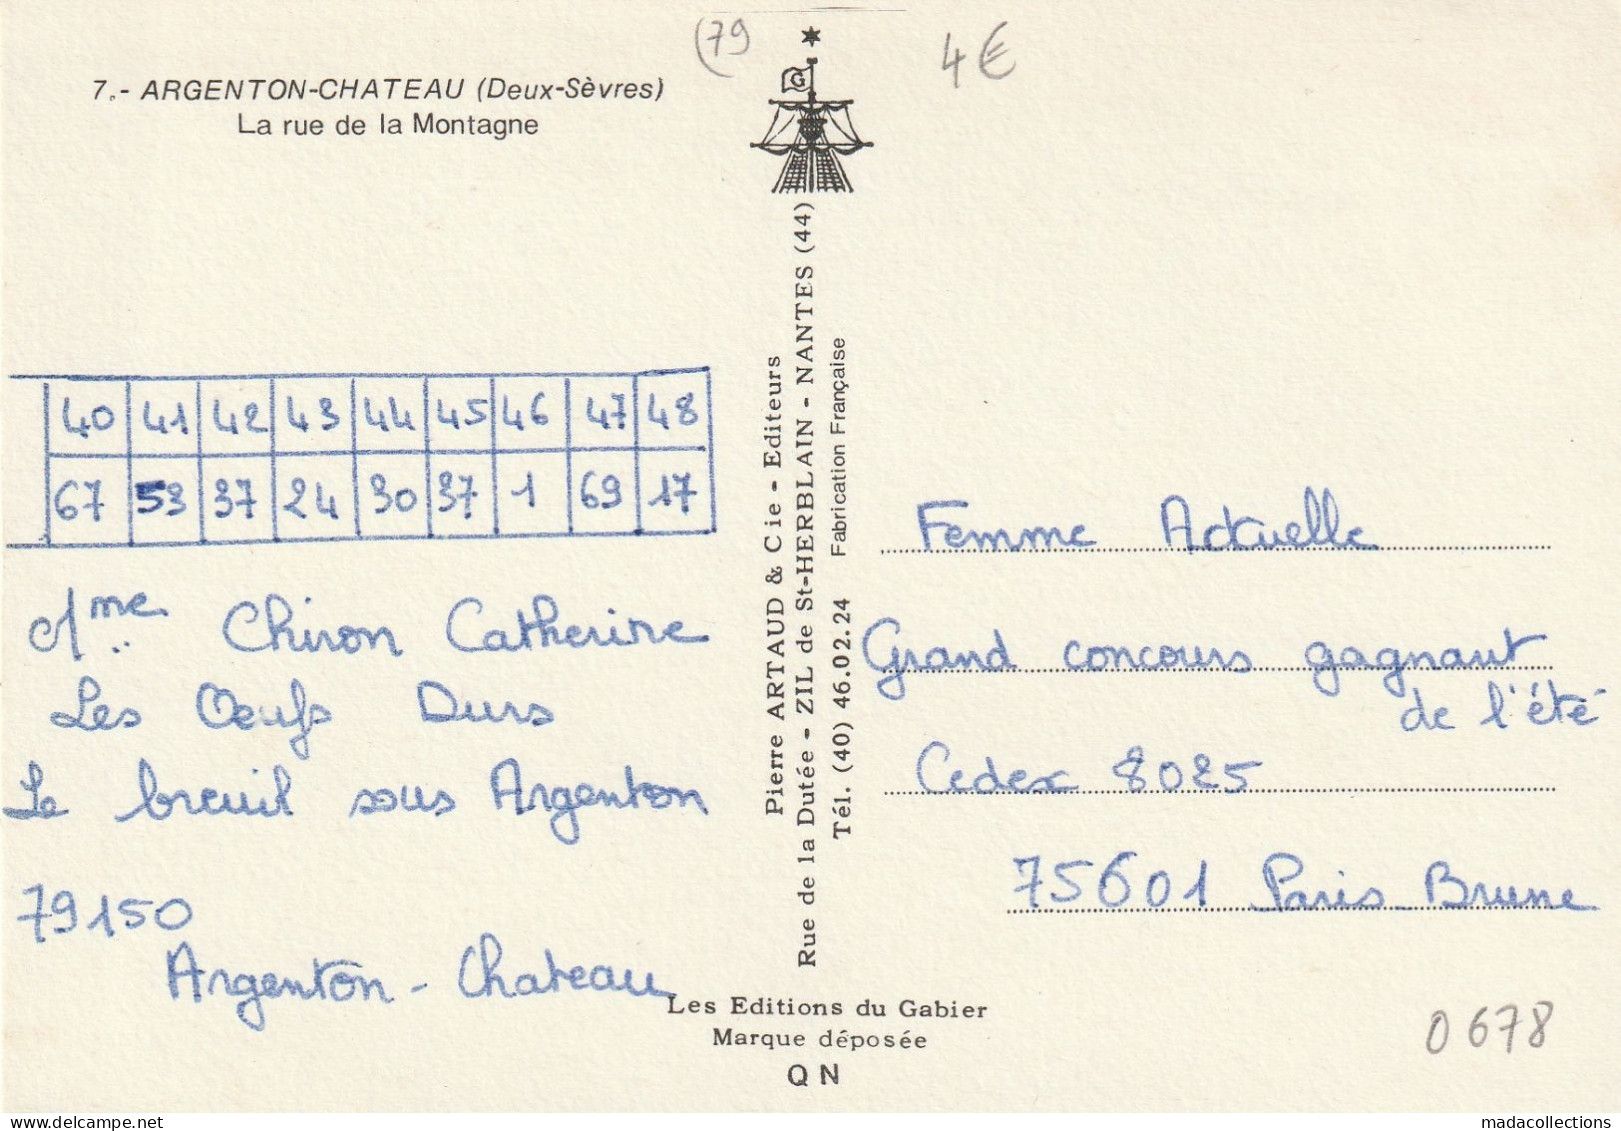 (79
4€
7.- ARGENTON-CHATEAU (Deux-Sèvres)
La rue de la Montagne
G
40 41 42 43 44 45 46 47 48
67 53 37 24 30 37 1 69 17
Mme Chiron Catherine
Les Oeufs Durs
Le breuil sous Argenton
79150
Argenton - Chateau
Pierre ARTAUD & Cie - Editeurs
Rue de la Dutée - ZIL de St-HERBLAIN - NANTES (44)
Tél. (40) 46.02.24 Fabrication Française
Femme Actuelle
Grand concours gagnant
de l'été
Cedex 8025
75601 Paris Brune
Les Editions du Gabier
Marque déposée
QN
0678
madacollections - delcampe.net